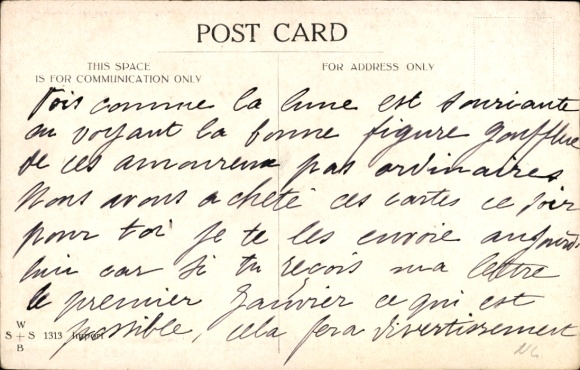 POST CARD
THIS SPACE
IS FOR COMMUNICATION ONLY
FOR ADDRESS ONLY
Vois comme la lune est souriante
en voyant la bonne figure gonflée
de ces amoureux pas ordinaires
Nous avons acheté ces cartes ce soir
pour toi je te les envoie aujourd'
hui car si tu reçois ma lettre
le premier Janvier ce qui est
possible, cela fera divertissement
W
S + S 1313 Import
B